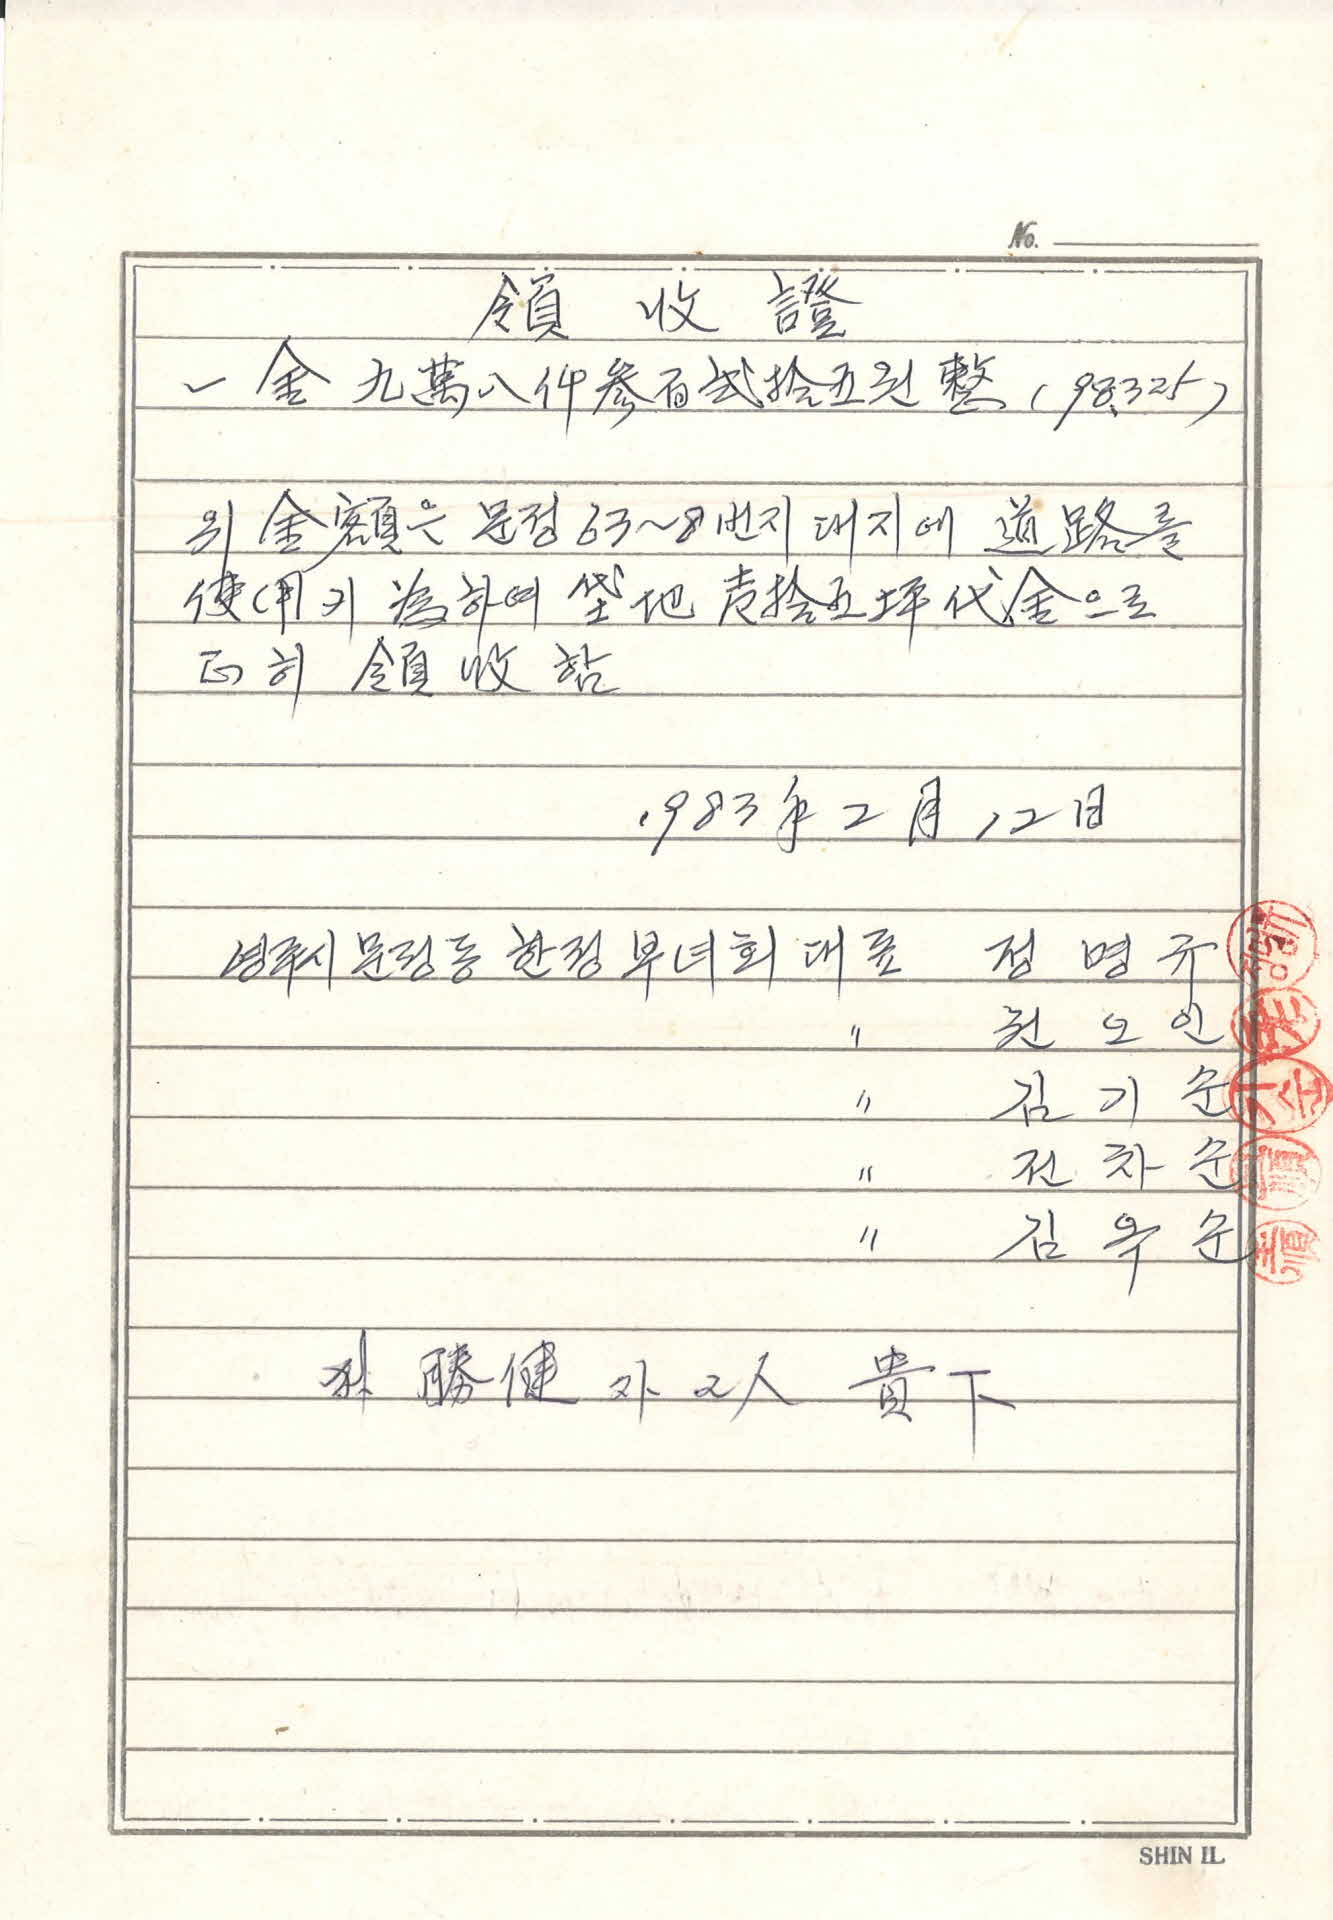 No.
領 收 證
一 金 九萬八仟參百貳拾五원整 (98,325)
위 金額은 문정 63~8번지 대지에 道路를
使用키 爲하여 垈地 壱拾五坪 代金으로
正히 領收함
1983年 2月 12日
영주시 문정동 한정부녀회 대표 정명규
〃 권오인
〃 김기순
〃 전차순
〃 김옥순
勝健 外 2人 貴下
SHIN IL